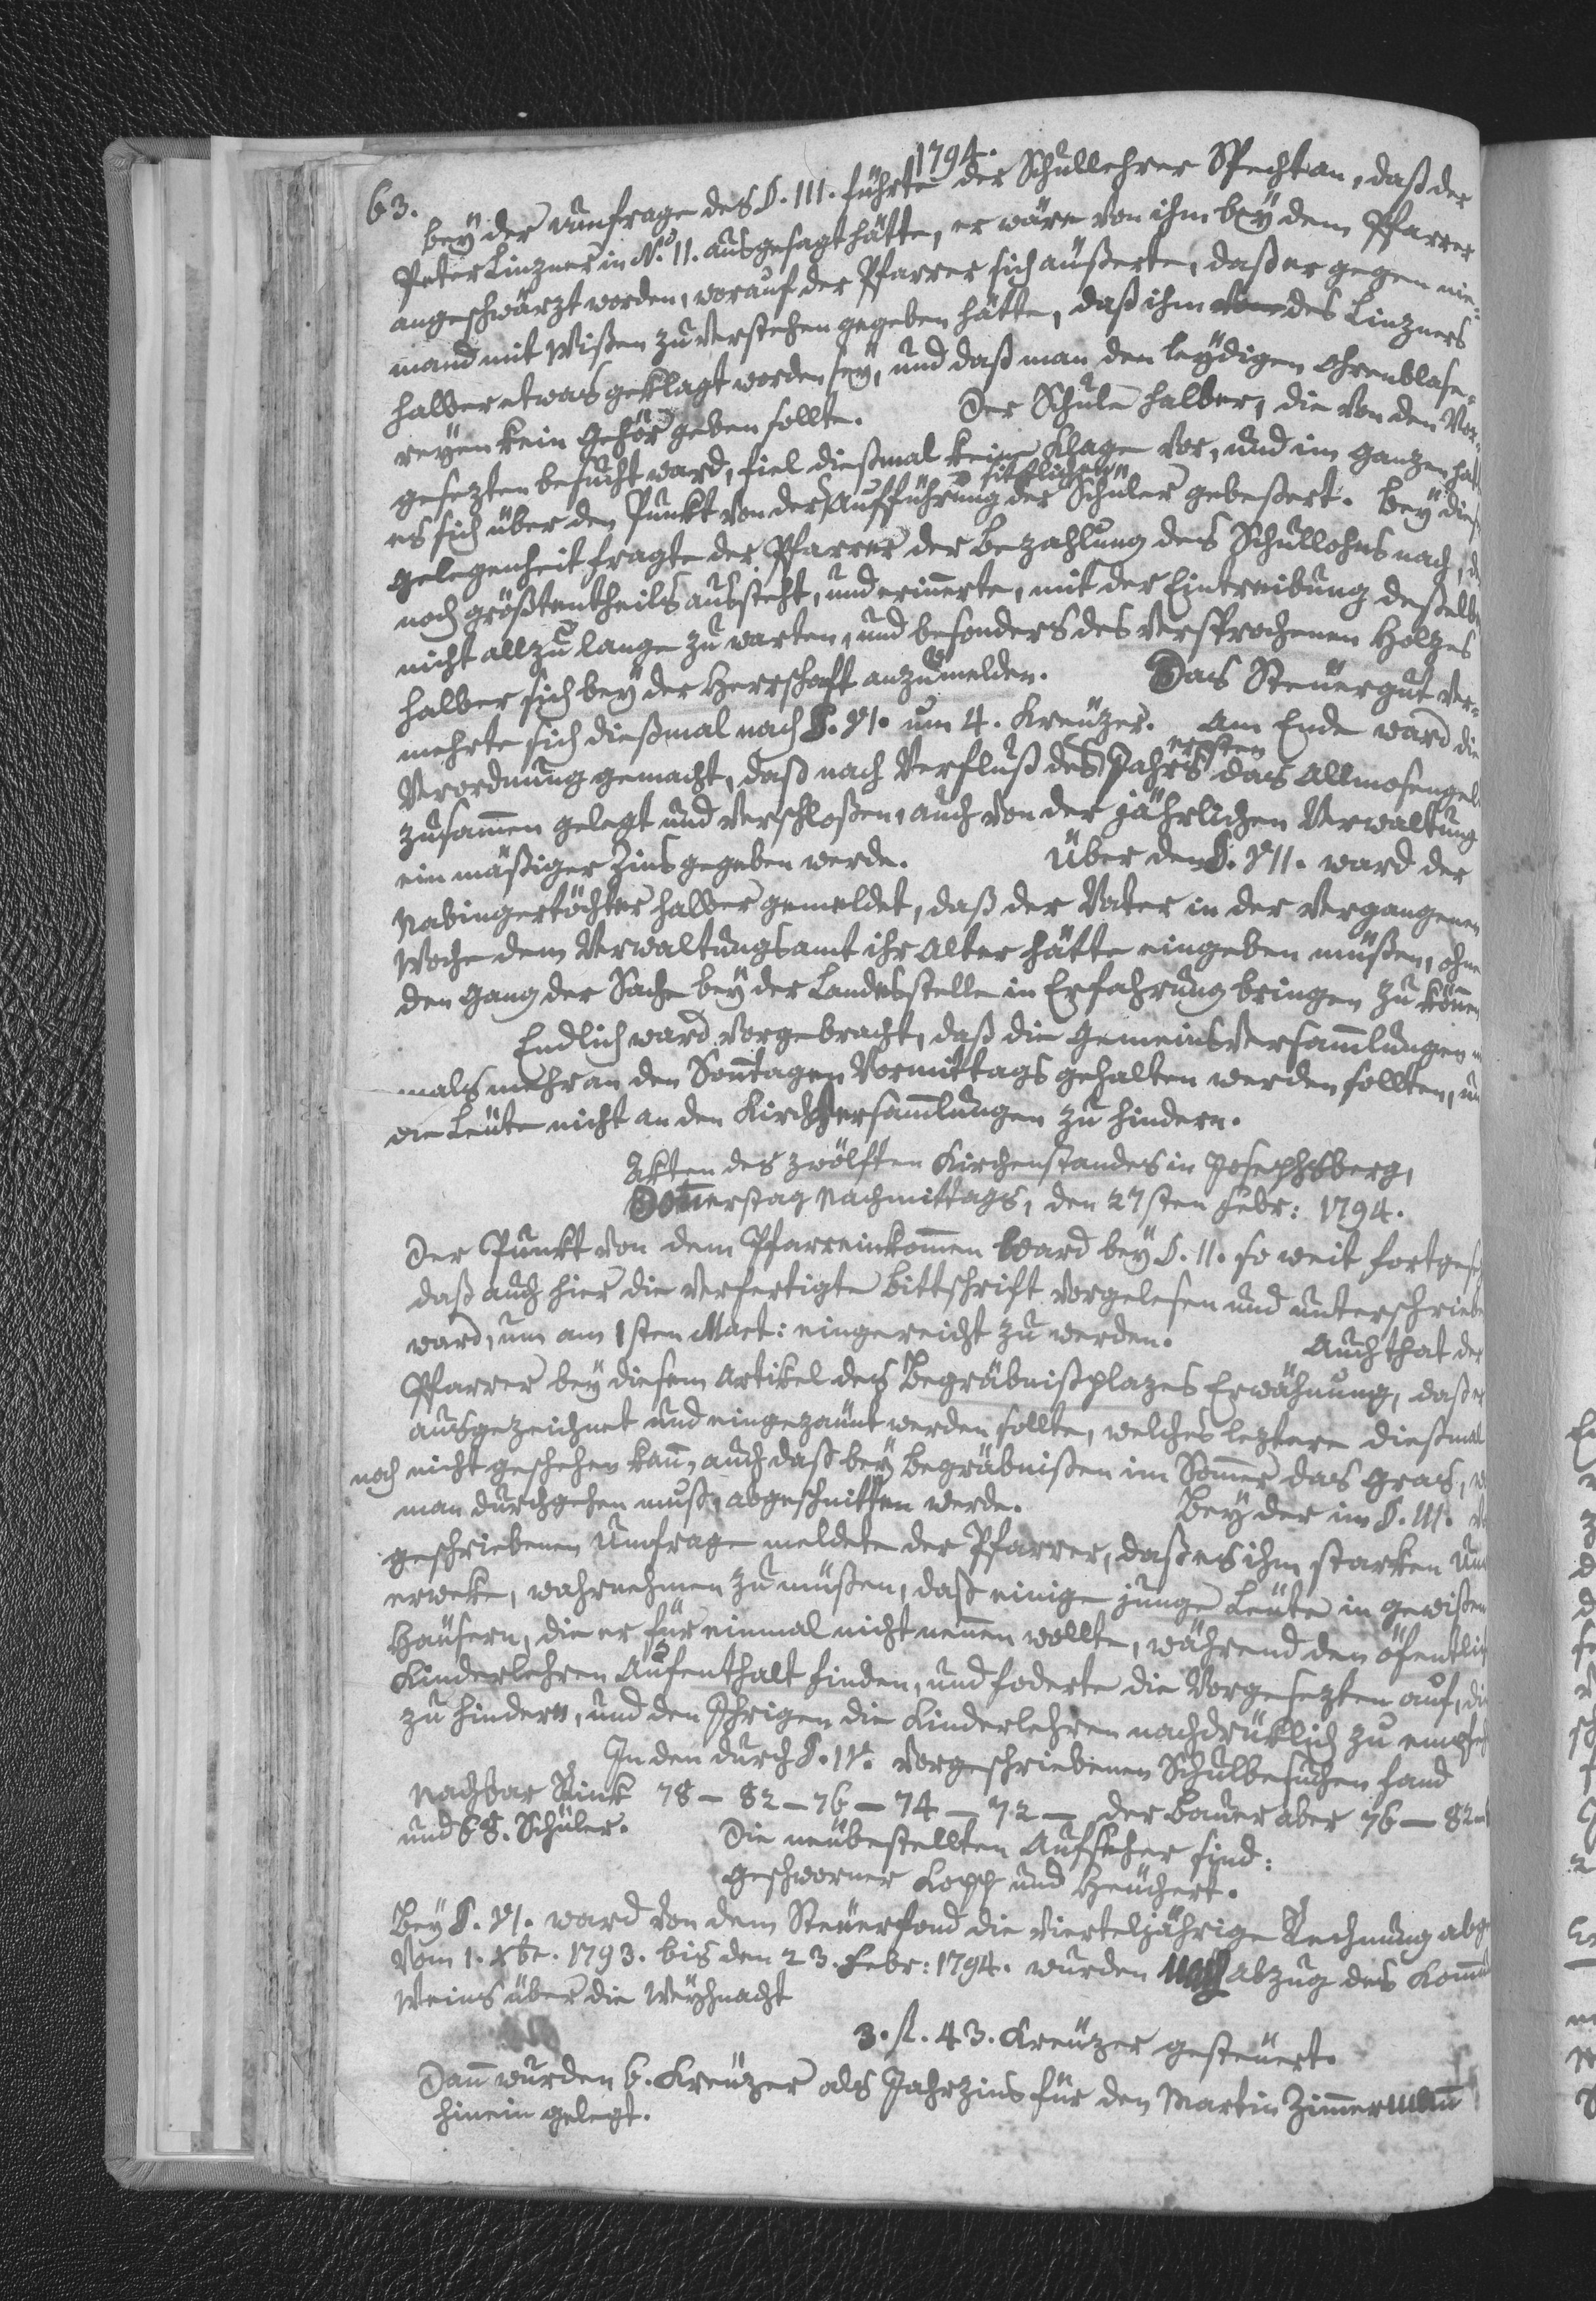 1794.
63.
bey der Umfrage des §. III. führte der Schullehrer Specht an, daß der
Peter Linzner in N.° 11. ausgesagt hätte, er wäre von ihm bey dem Pfarrer
angeschwärzt worden, worauf der Pfarrer sich äußerte, daß er gegen nie-
mand mit Wißen zu verstehen gegeben hätte, daß ihm des Linzners
halber etwas geklagt worden sey, und daß man den leydigen Ohrenblase-
reyen kein Gehör geben sollte. Der Schule halber, die von den Vor-
gesezten besucht ward, fiel dießmal keine Klage vor, und im Ganzen hat
es sich über den Punkt von der sittlichen Aufführung der Schüler gebeßert. Bey dies
Gelegenheit fragte der Pfarrer der Bezahlung des Schullohns nach, d
noch größtentheils aussteht, und erinnerte, mit der Eintreibung deßelbe
nicht allzu lange zu warten, und besonders des versprochenen Holzes
halber sich bey der Herrschaft anzumelden. Das Steuergut ver-
mehrte sich dießmal nach §. VI. um 4. Kreuzer. Am Ende ward die
Verordnung gemacht, daß nach Verfluß des ersten Jahrs das Allmosengel
zusam̄en gelegt und verschloßen, auch von der jährlichen Verwaltung
ein mäßiger Zins gegeben werde. Über den §. VII. ward der
Nabingertöchter halber gemeldet, daß der Vater in der vergangenen
Woche dem Verwaltungsamt ihr Alter hätte eingeben müßen, ohne
den Gang der Sache bey der Landesstelle in Erfahrung bringen zu kön̄en
Endlich ward vorgebracht, daß die Gemeinsversam̄lungen n
mals mehr an den Son̄tagen Vormittags gehalten werden sollten, um
die Leute nicht an den Kirchversam̄lungen zu hindern.
Akten des zwölften Kirchenstandes in Josephsberg,
Don̄erstag Nachmittags, den 27sten Febr: 1794.
Der Punkt von dem Pfarreinkom̄en ward bey §. II. so weit fortgesez
daß auch hier die verfertigte Bittschrift vorgelesen und unterschriebe
ward, um am 1sten Maert: eingereicht zu werden. Auch that der
Pfarrer bey diesem Artikel des Begräbnißplazes Erwähnung, daß er
ausgezeichnet und eingezäunt werden sollte, welches leztere dießmal
noch nicht geschehen kan̄, auch daß bey Begräbnißen im Som̄er das Gras, w
man durchgehen muß, abgeschnitten werde. Bey der im §. III. v
geschriebenen Umfrage meldete der Pfarrer, daß es ihm starken Un
erweke, wahrnehmen zu müßen, daß einige junge Leute in gewißen
Häusern, die er für einmal nicht nen̄en wollte, während den öfentlich
Kinderlehren Aufenthalt finden, und foderte die Vorgesezten auf, die
zu hindern, und den Ihrigen die Kinderlehren nachdrüklich zu empfeh
In den durch §. IV. vorgeschriebenen Schulbesuchen fand
Nachbar Rink 78 – 82 – 76 – 74 – 72 – der Bauer aber 76 – 82
und 68. Schüler. Die neubestellten Aufseher sind:
Geschworner Kopp und Heuchert.
Bey §. VI. ward von dem Steuerfond die vierteljährige Rechnung abge
Vom 1. Xbr. 1793. bis den 23. Febr: 1794. wurden nach Abzug des Kom̄u
Weins über die Weyhnacht
3. fl. 43. Kreuzer gesteuert.
Dan̄ wurden 6. Kreuzer als Jahrzins für den Martin Zim̄erman̄
hinein gelegt.